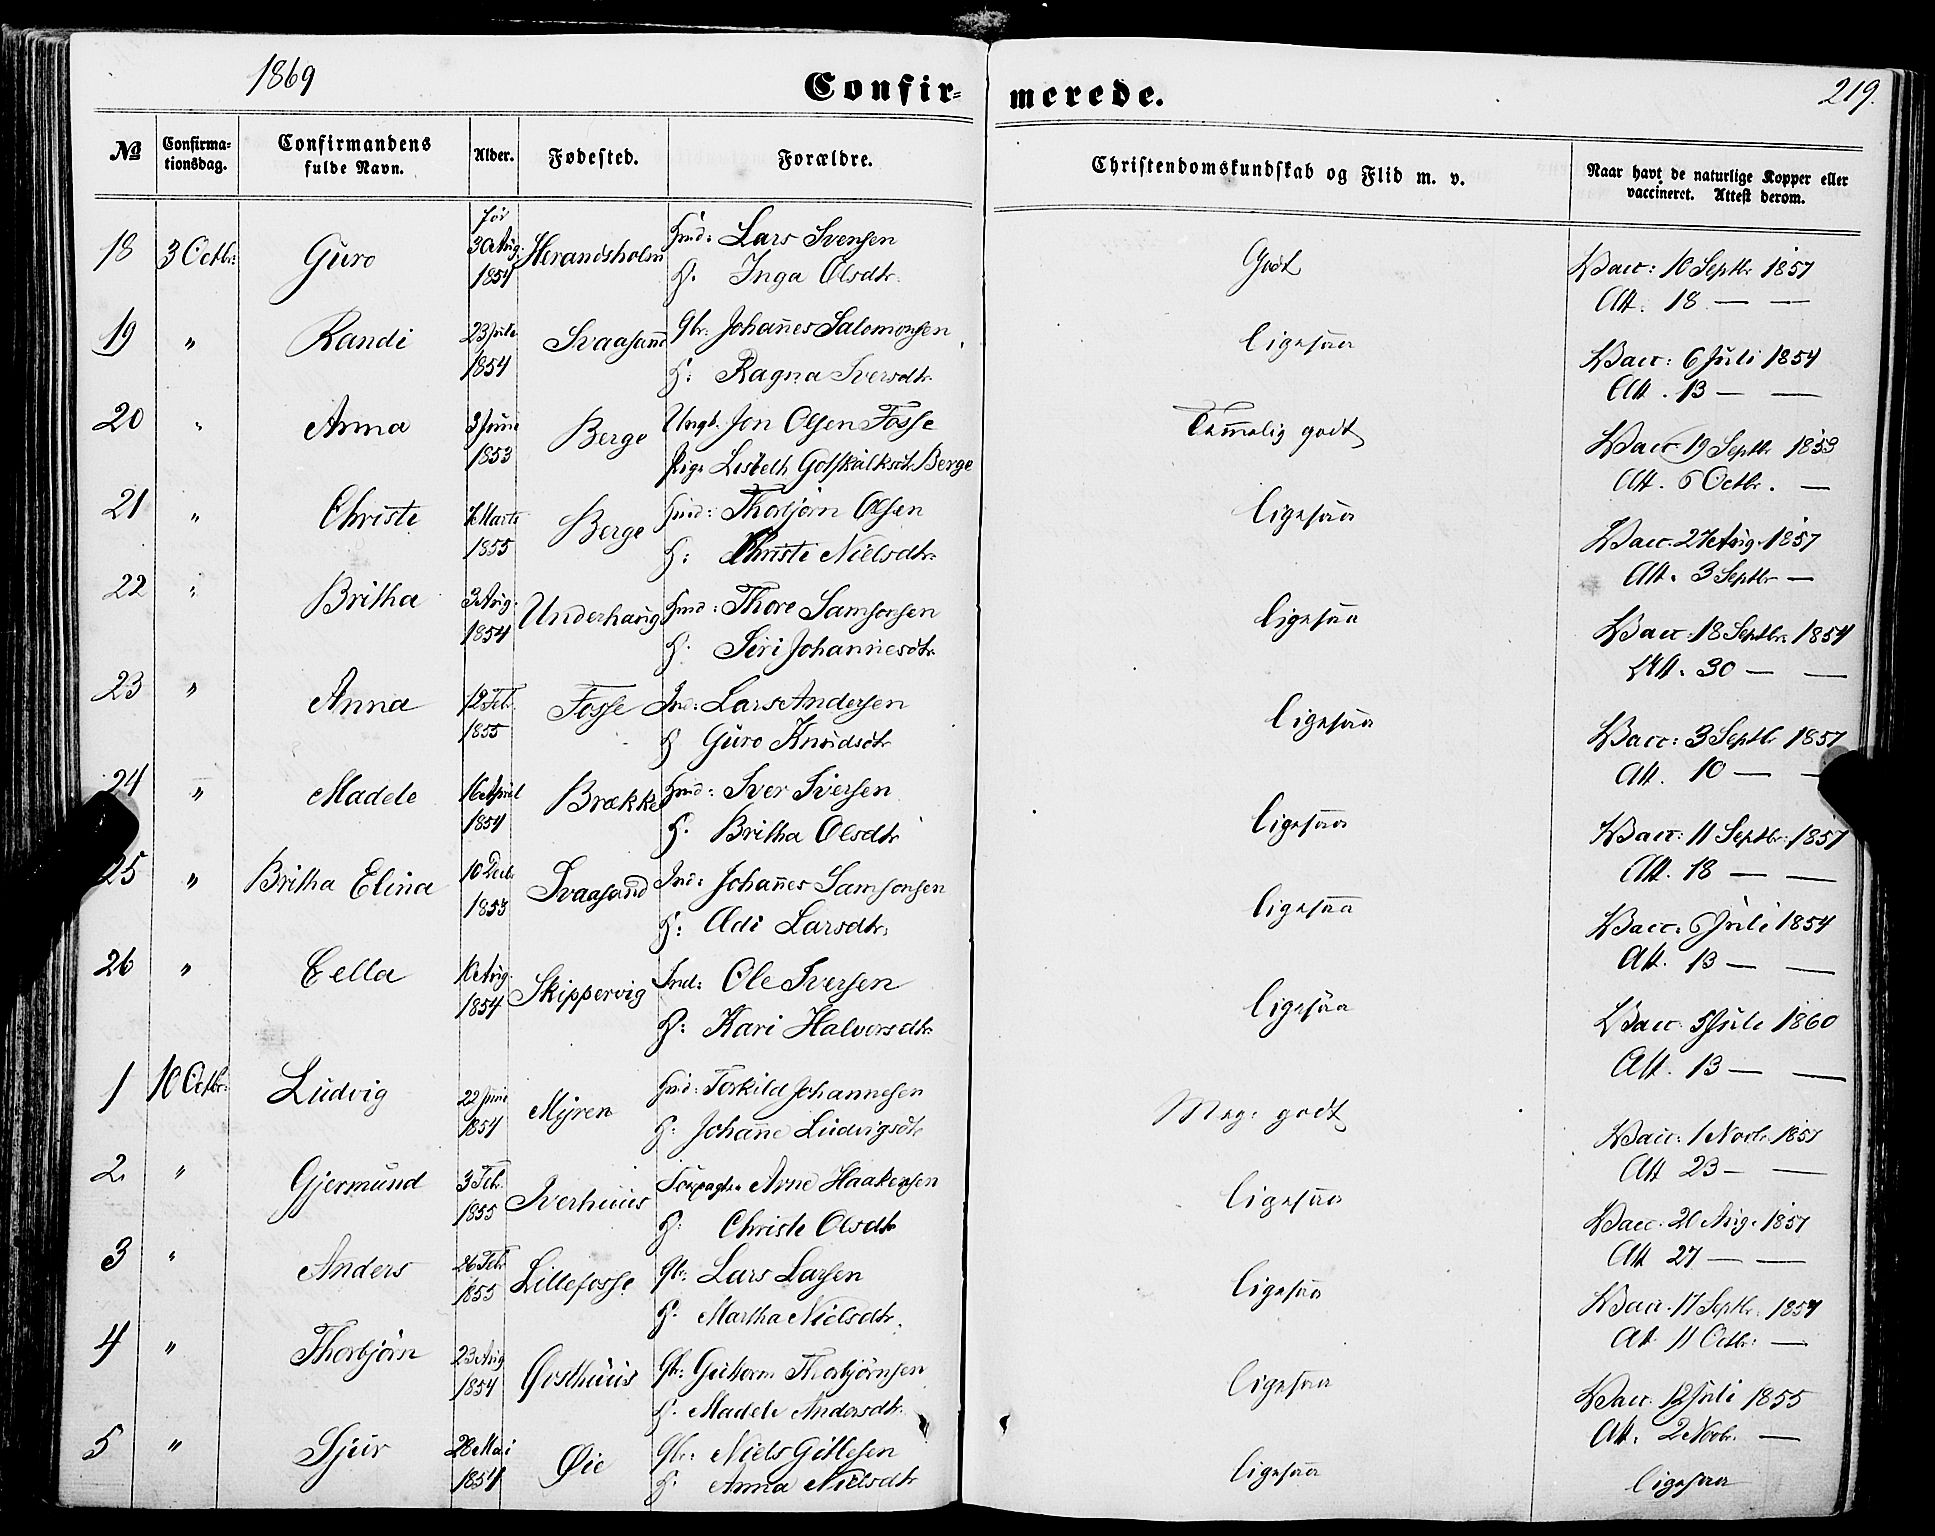 1869
Confir-
merede.
219.
No
Confirma-
tionsdag.
Confirmandens
fulde Navn.
Alder.
Fødested.
Forældre.
Christendomskundskab og Flid m. v.
Naar havt de naturlige Kopper eller
vaccineret. Attest derom.
18 3 Octbr: Guro 30 Aug. 1854 Herandsholm Huusm: Lars Ivensen
H. Inga Olsdtr.
Godt
Vacc: 10 Septbr 1857
Att. 18 — —
19 " Randi 23 Juli 1854 Svaasand Gbr: Johannes Salomonsen
H: Ragna Iversdtr.
ligesaa
Vacc: 6 Juli 1854
Att. 13 — —
20 " Anna 3 Juni 1853 Berge Ungk. Jon Olsen Fosse
Pige Lisbeth Gotskalksdtr Berge
Temmelig godt
Vacc. 19 Septbr 1853
Att. 6 Octbr. —
21 " Christi Marts 1855 Berge Thorbjørn Olsen
H: Christi Nielsdtr.
ligesaa
Vacc. 27 Aug. 1857
Att. 3 Septbr —
22 " Britha 3 Aug. 1854 Underhaug Thore Samsonsen
H: Siri Johannesdtr.
ligesaa
Vacc. 18 Septbr. 1854
Att. 30 — —
23 " Anna 12 Feb. 1855 Fosse Ind: Lars Andersen
H Guro Knudsdtr
ligesaa
Vacc: 3 Septbr 1857
Att. 10 — —
24 " Madele 16 April 1854 Brække Iver Iversen
H. Britha Olsdtr
ligesaa
Vacc: 11 Septbr: 1857
Att. 18 — —
25 " Britha Elina 10 Decb. 1853 Svaasand Ind: Johannes Samsonsen
H: Adi Larsdtr.
ligesaa
Vacc. 6 Juli 1854
Att. 13 — —
26 " Cella Aug. 1854 Skippervig Ind: Ole Iversen
H: Kari Halvorsdtr.
ligesaa
Vacc. 5 Juli 1860
Att. 13 — —
1 10 Octbr: Ludvig 22 Juni 1854 Myren Torkild Johannesen
H: Johanne Ludvigsdtr
Meg. godt
Vacc: 1 Novbr. 1857
Att 23 — —
2. " Gjermund 3 Feb. 1855 Iverhuus Arne Haakensen
H: Christi Olsdtr
ligesaa
Vacc. 20 Aug. 1857
Att 27 — —
3 " Anders 26 Feb. 1855 Lillefosse Gbr: Lars Larsen
H. Martha Nielsdtr.
ligesaa
Vacc. 17 Septbr. 1857
Att 11 Octbr: —
4 " Thorbjörn 23 Aug 1854 Østhuus Gbr: Guttorm Thorbjörnsen
H. Madele Andersdtr.
ligesaa
Vacc. 12 Juli 1855
Att. 2 Novbr. —
5 " Sjur 28 Mai 1854 Øie Gbr: Niels Gitlesen
H. Anna Nielsdtr
ligesaa
ligesaa